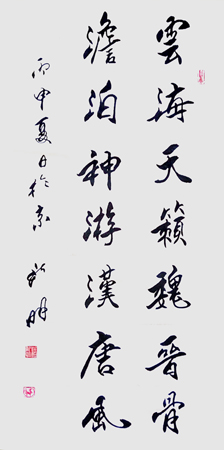 雲海天籟魏晉骨
澹泊神游漢唐風
丙申夏日於京